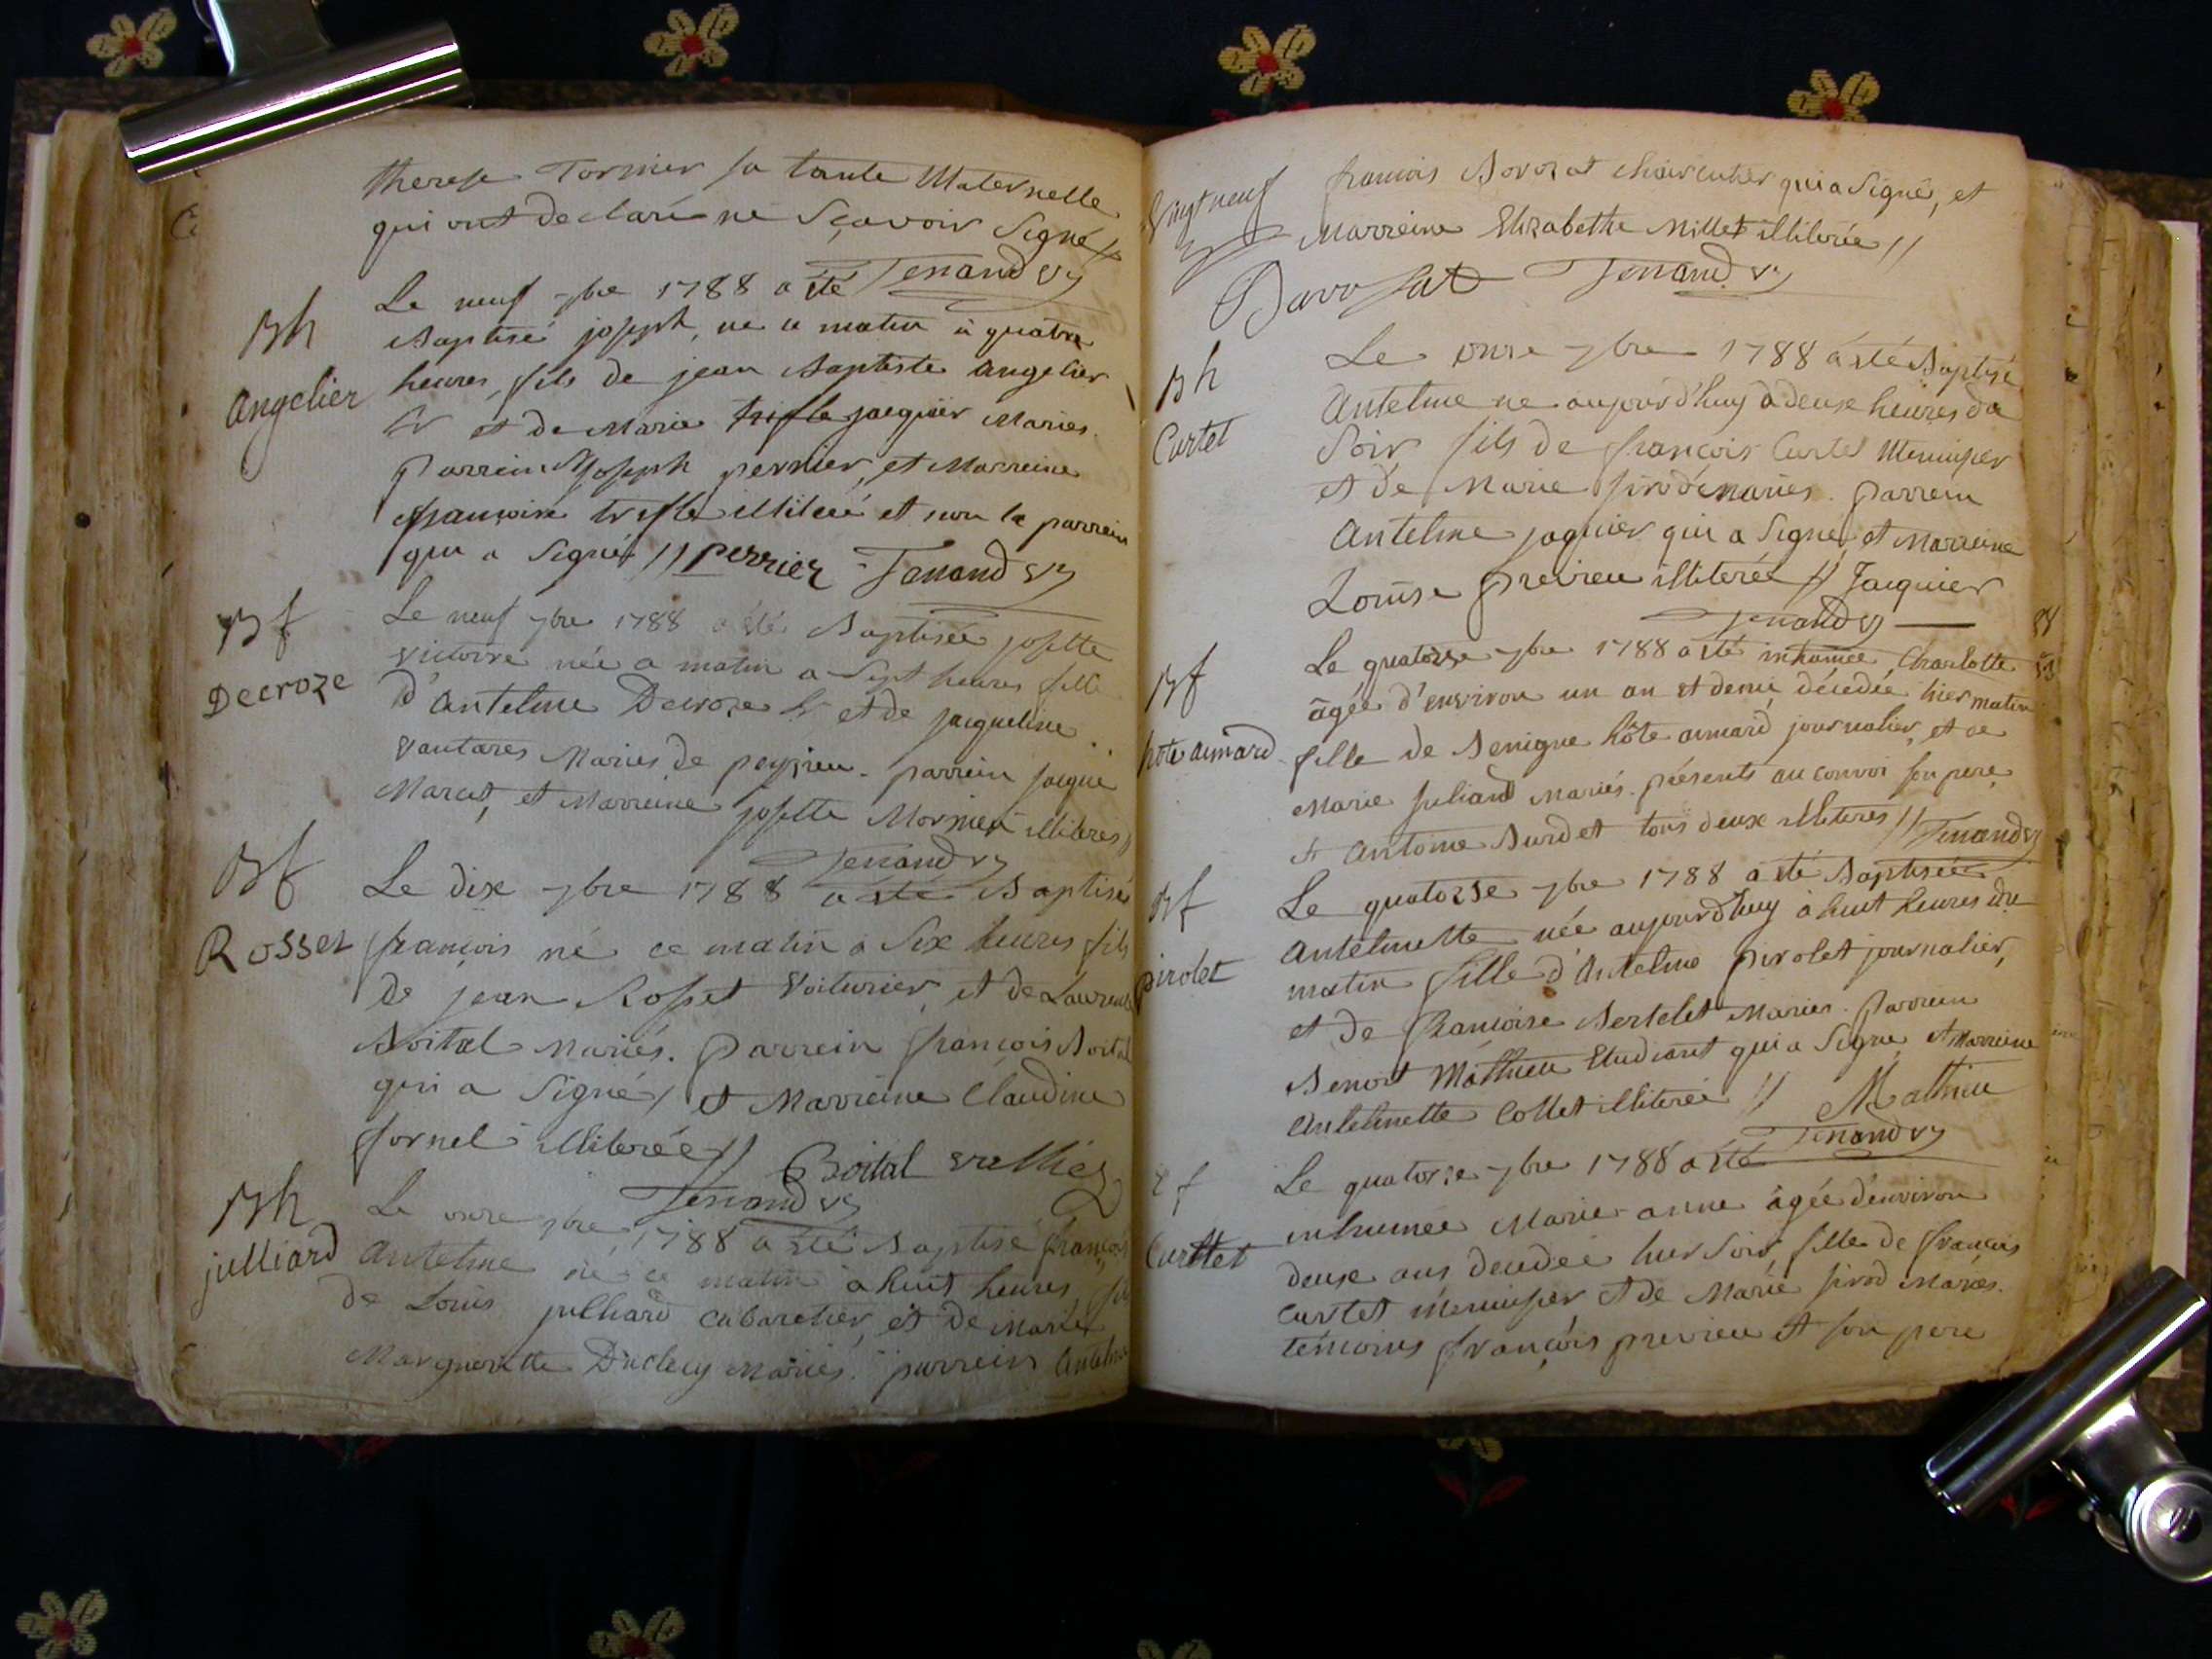 therese Tormier sa tante Maternelle
qui ont declaré ne Sçavoir Signé //
Tenand vre
Bh
angelier
Le neuf 7bre 1788 a été
Baptisé joseph, né ce matin à quatre
heures, fils de jean Baptiste angelier
Lr et de Marie trifle jacquier Mariés.
Parrein Joseph perrier, et Marreine
françoise trifle illiteré et non le parrein
qui a Signé // perrier Tenand vre
Bf
Decroze
Le neuf 7bre 1788 a été Baptisée josette
victoire née ce matin a Sept heures fille
d'antelme Decroze Lr et de jacqueline
vantares Mariés de peyzieu. parrein jacque
Marcet, et Marreine josette Mornieu illiterés //
Tenand vre
Bf
Rosset
Le dix 7bre 1788 a été Baptisé
françois né ce matin à Six heures fils
de jean Rosset Voiturier, et de Laurence
Boital Mariés. Parrein françois Boital
qui a Signé, et Marreine Claudine
fornel illiterée // Boital vallier
Tenand vre
Bh
julliard
Le onze 7bre 1788 a été Baptisé françois
antelme né ce matin à huit heures, fils
de Louis julliard cabaretier, et de Marie
Marguerite Duclery Mariés. parrein antelme
Vingt neuf
francois Bovozat chaircutier qui a Signé, et
Marreine Elizabethe Millet illiterée //
Bavozat Tenand vre
Bh
Curtet
Le onze 7bre 1788 a été Baptisé
antelme né aujourd'huy à deux heures du
Soir fils de françois Curtet Menuisier
et de Marie sirod mariés. Parrein
antelme jaquier qui a Signé, et Marreine
Louise previeu illiterée // Jacquier
Tenand vre
Bf
hote aimard
Le quatorze 7bre 1788 a été inhumée Charlotte
âgée d'environ un an et demie, décedée hier matin
fille de Benigne hôte aimard journalier, et de
Marie juliand Mariés. présents au convoi son pere,
et antoine Burdet tous deux illiterés // Tenand vre
Bf
pirolet
Le quatorze 7bre 1788 a été Baptisée
antelmette née aujourd'huy à huit heures du
matin fille d'antelme pirolet journalier,
et de françoise Bertelet Mariés. Parrein
Benoit Mathieu Etudiant qui a Signé, et Marreine
antelmette Collet illiterée // Mathieu
Tenand vre
Curttet
Le quatorze 7bre 1788 a été
inhumée Marie-anne âgée d'environ
deux ans decedée hier Soir, fille de françois
Curtet menuisier et de Marie sirod Mariés.
témoins françois previeu et son pere